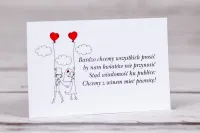 Bardzo chcemy wszystkich prosić
by nam kwiatów nie przynosić
Stąd wiadomość ta publice:
Chcemy z winem mieć piwnicę!